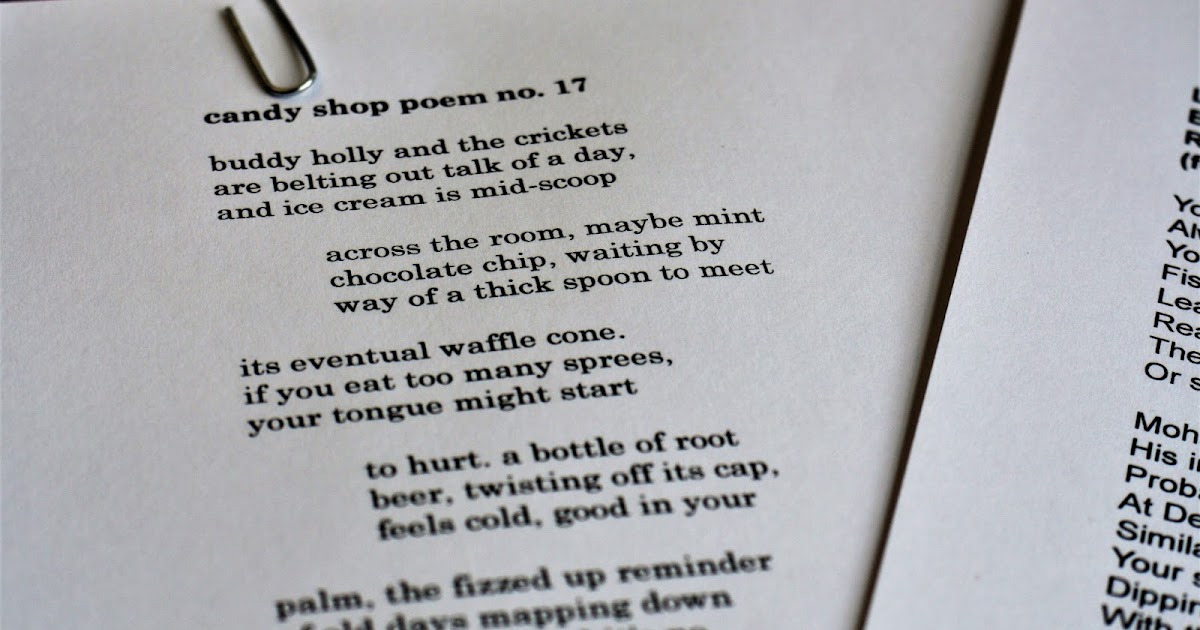 candy shop poem no. 17
buddy holly and the crickets
are belting out talk of a day,
and ice cream is mid-scoop
across the room, maybe mint
chocolate chip, waiting by
way of a thick spoon to meet
its eventual waffle cone.
if you eat too many sprees,
your tongue might start
to hurt. a bottle of root
beer, twisting off its cap,
feels cold, good in your
palm, the fizzed up reminder
days mapping down
Fis
Lea
Rea
The
Or s
Moh
His i
Prob
At De
Simila
Your s
Dippin
With